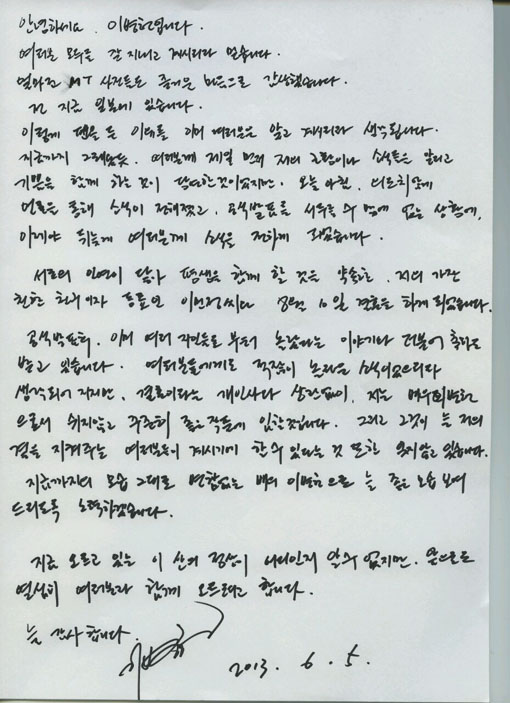 안녕하세요. 이병헌입니다.
여러분 모두들 잘 지내고 계시리라 믿습니다.
얼마전 MT 사진들도 즐거운 마음으로 감상했습니다.
전 지금 일본에 있습니다.
이렇게 펜을 든 이유를 이미 여러분은 알고 계시리라 생각됩니다.
지금까지 그래왔듯. 여러분께 제일 먼저 저의 고민이나 소식들을 알리고
기쁨을 함께 하는 것이 당연한 것이었지만. 오늘 아침,
언론을 통해 소식이 전해졌고, 공식발표를 서두를 수 밖에 없는 상황에,
이제야 뒤늦게 여러분께 소식을 전하게 되었습니다.
서로의 인연이 닿아 평생을 함께 할 것을 약속한, 저의 가장
친한 친구이자 동료인 이민정씨와 8월 10일 결혼을 하게 되었습니다.
공식발표후, 이미 여러 지인들로 부터 놀랐다는 이야기와 더불어 축하를
받고 있습니다. 여러분들에게도 적잖이 놀라운 소식이었으리라
생각되어 지지만, 결혼이라는 개인사와 상관없이, 저는 배우 이병헌
으로서 쉬지않고 꾸준히 좋은 작품에 임할것입니다. 그리고 그것이 늘 저의
곁을 지켜주는 여러분들이 계시기에 할 수 있다는 것 또한 잊지않고 있습니다.
지금까지의 모습 그대로 변함없는 배우 이병헌으로 늘 좋은 모습 보여
드리도록 노력하겠습니다.
지금 오르고 있는 이 산의 정상이 어디인지 알 수 없지만. 앞으로도
열심히 여러분과 함께 오르려고 합니다.
늘 감사합니다.
2013. 6. 5.